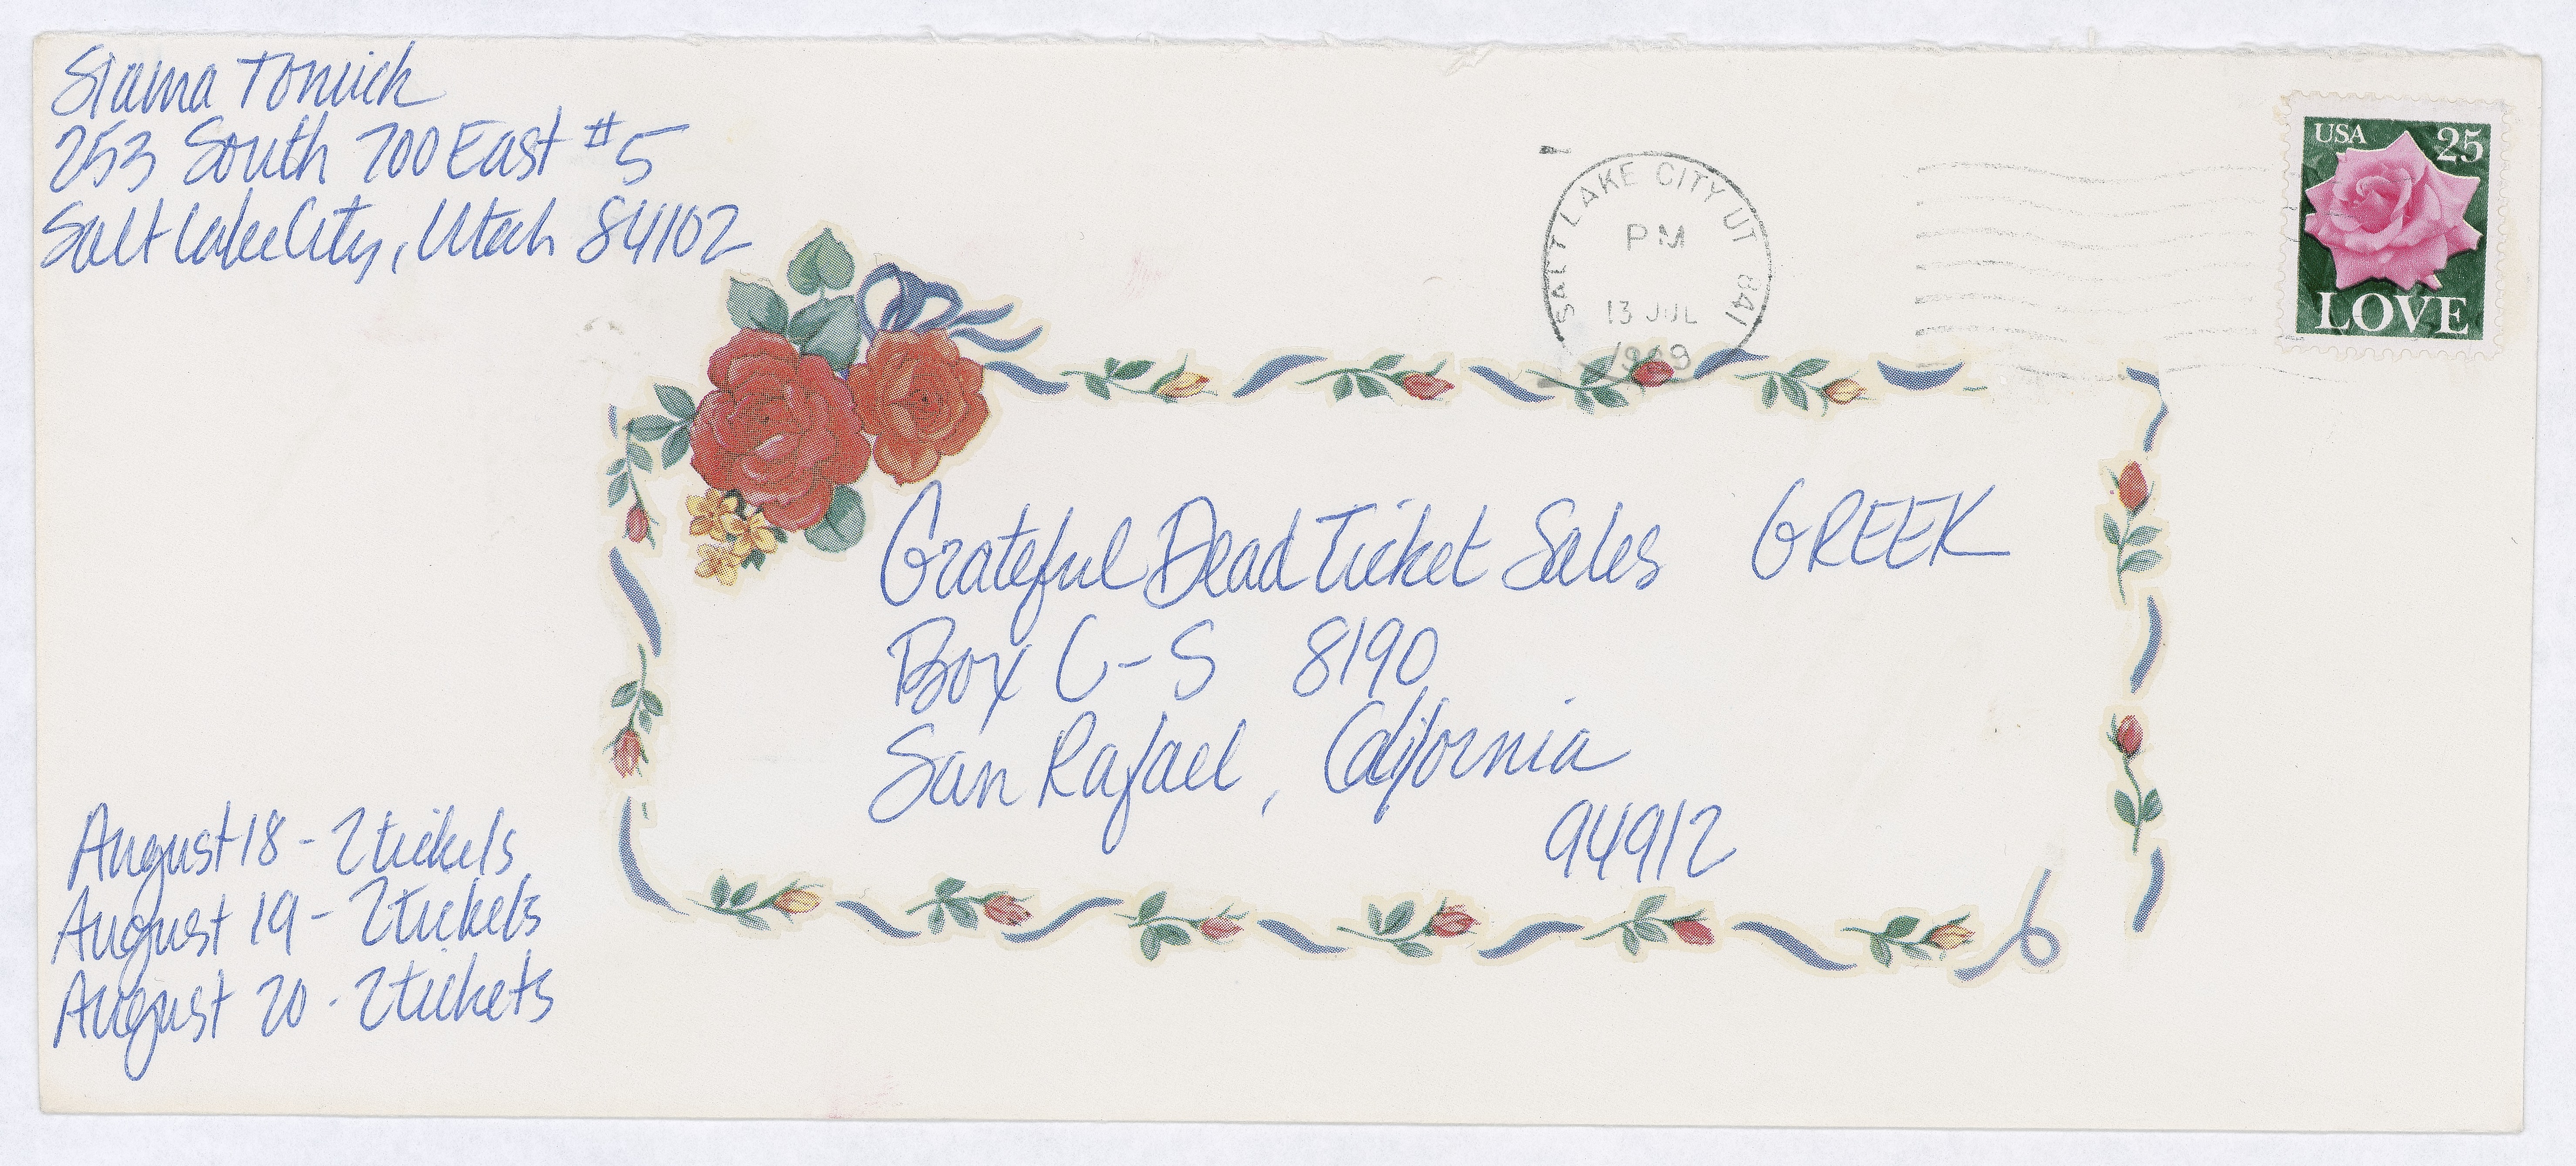 253 South 700 East #5
Salt Lake City, Utah 84102
SALT LAKE CITY UT 841
PM
13 JUL
1989
USA 25
LOVE
Grateful Dead Ticket Sales GREEK
Box C-S 8190
San Rafael, California
94912
August 18 - 2 tickets
August 19 - 2 tickets
August 20 - 2 tickets